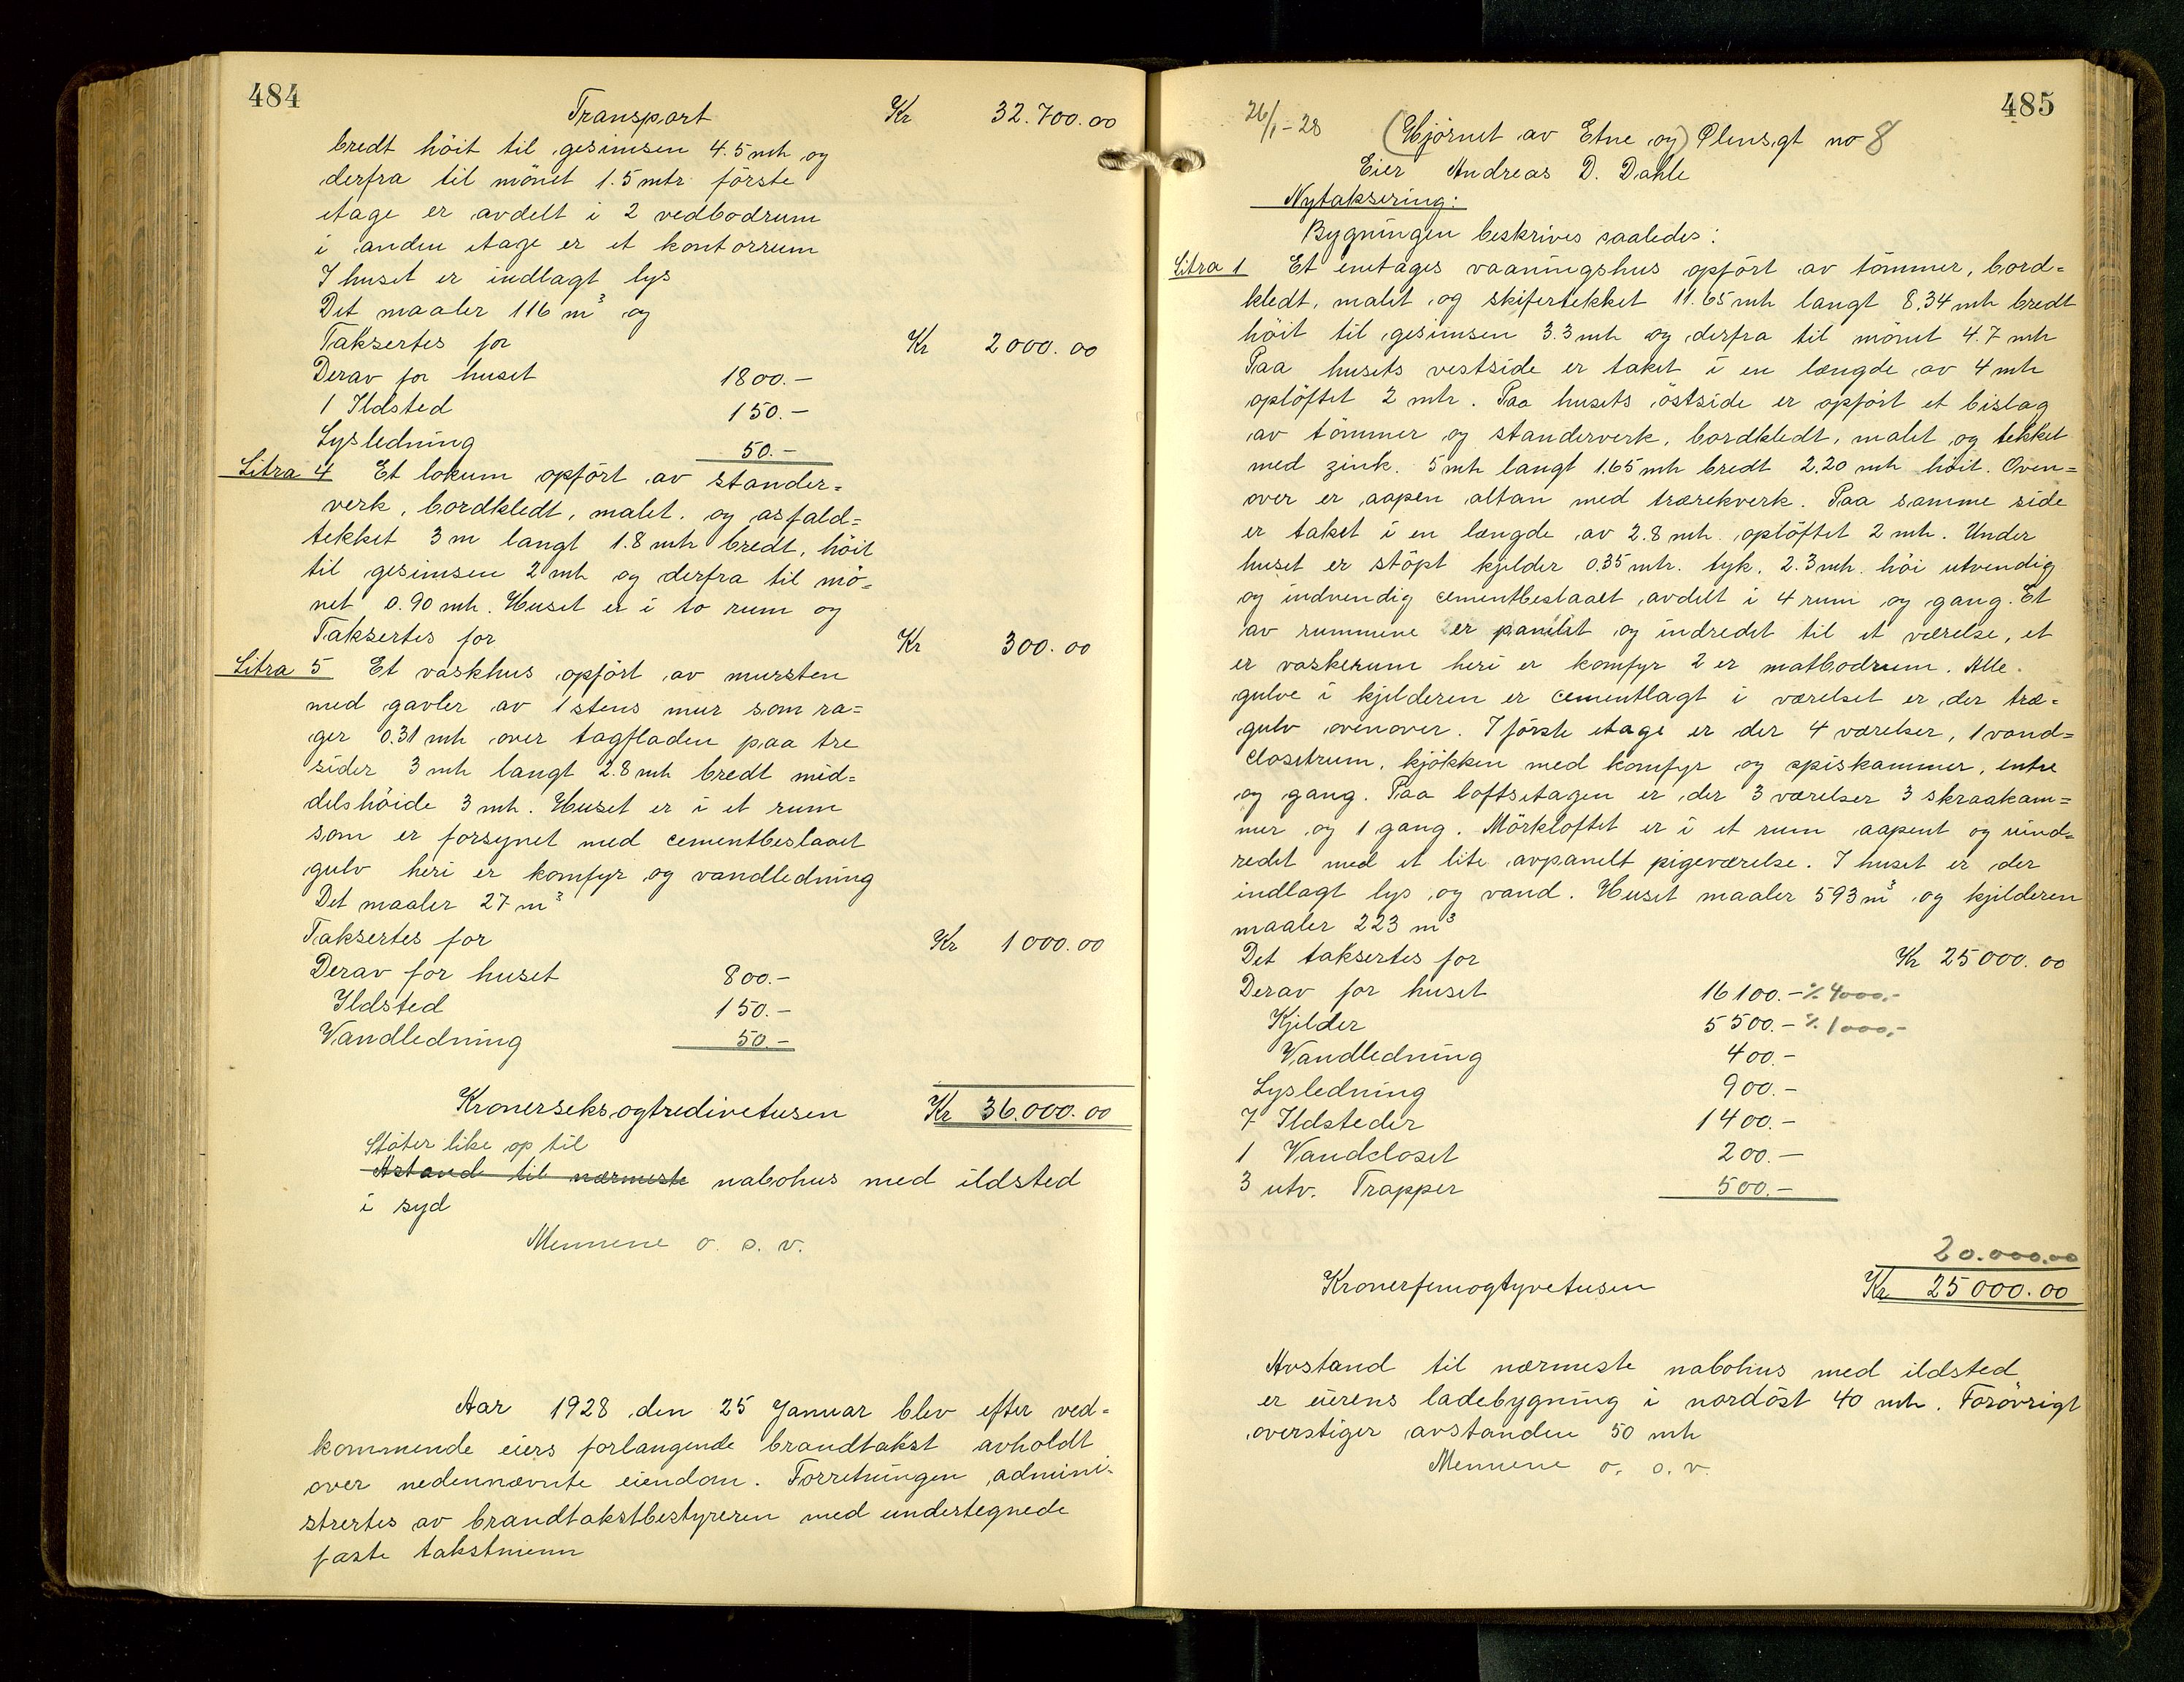 484
Transport Kr 32.700.00
bredt höit til gesimsen 4.5 mtr og
derfra til mönet 1.5 mtr förste
etage er avdelt i 2 vedbodrum
i anden etage er et kontorrum
I huset er indlagt lys
Det maaler 116 m³ og
Taksertes for Kr 2000.00
Derav for huset 1800.-
1 Ildsted 150.-
Lysledning 50.-
Litra 4 Et lokum opfört av stander=
verk, bordkledt, malet. og asfald=
tekket 3 m langt 1.8 mtr bredt, höit
til gesimsen 2 mtr og derfra til mö-
net 0.90 mtr. Huset er i to rum og
Taksertes for Kr 300.00
Litra 5 Et vaskhus opfört av mursten
med gavler av 1 stens mur som ra=
ger 0.31 mtr over tagfladen paa tre
sider 3 mtr langt 2.8 mtr bredt mid=
delshöide 3 mtr. Huset er i et rum
som er forsynet med cementbeslaaet
gulv heri er komfyr og vandledning
Det maaler 27 m³
Taksertes for Kr 1000.00
Derav for huset 800.-
Ildsted 150.-
Vandledning 50.-
Kronerseksogtredivetusen Kr 36.000.00
Stöter like op til
Astand til nærmeste nabohus med ildsted
i syd
Mennene o. s. v.
Aar 1928 den 25 Januar blev efter ved-
kommende eiers forlangende brandtakst avholdt
over nedennævnte eiendom. Forretningen admini-
strertes av brandtakstbestyreren med undertegnede
faste takstmenn
485
26/1-28 (Hjörnet av Etne og) Olensgt no 8
Eier Andreas D. Dahle
Nytaksering:
Bygningen beskrives saaledes:
Litra 1 Et enetages vaaningshus opfört av tömmer, bord=
kledt, malet og skifertekket 11.65 mtr langt 8.34 mtr bredt
höit til gesimsen 3.3 mtr og derfra til mönet 4.7 mtr
Paa husets vestside er taket i en længde av 4 mtr
oplöftet 2 mtr. Paa husets östside er opfört et bislag
av tömmer og standerverk, bordkledt, malet og tekket
med zink. 5 mtr langt 1.65 mtr bredt 2.20 mtr höit. Oven=
over er aapen altan med trærekverk. Paa samme side
er taket i en længde av 2.8 mtr oplöftet 2 mtr. Under
huset er stöpt kjelder 0.35 mtr. tyk. 2.3 mtr. höi utvendig
og indvendig cementbeslaaet avdelt i 4 rum og gang. Et
av rummene er panelet og indredet til et værelse, et
er vaskerum heri er komfyr 2 er matbodrum. Alle
gulve i kjelderen er cementlagt i værelset er der træ-
gulv ovenover. I förste etage er der 4 værelser, 1 vand=
closetrum, kjökken med komfyr og spiskammer, entre
og gang. Paa loftsetagen er der 3 værelser 3 skraakam=
mer og 1 gang. Mörkloftet er i et rum aapent og uind=
redet med et lite avpanelt pigeværelse. I huset er der
indlagt lys og vand. Huset maaler 593 m³ og kjelderen
maaler 223 m³
Det taksertes for Kr 25000.00
Derav for huset 16100.- ÷ 4000.-
Kjelder 5500.- ÷ 1000.-
Vandledning 400.-
Lysledning 900.-
7 Ildsteder 1400.-
1 Vandcloset 200.-
3 utv. Trapper 500.-
20.000.00
Kronerfemogtyvetusen Kr 25000.00
Avstand til nærmeste nabohus med ildsted
er eierens ladebygning i nordöst 40 mtr. Forövrigt
overstiger avstanden 50 mtr
Mennene o. s. v.